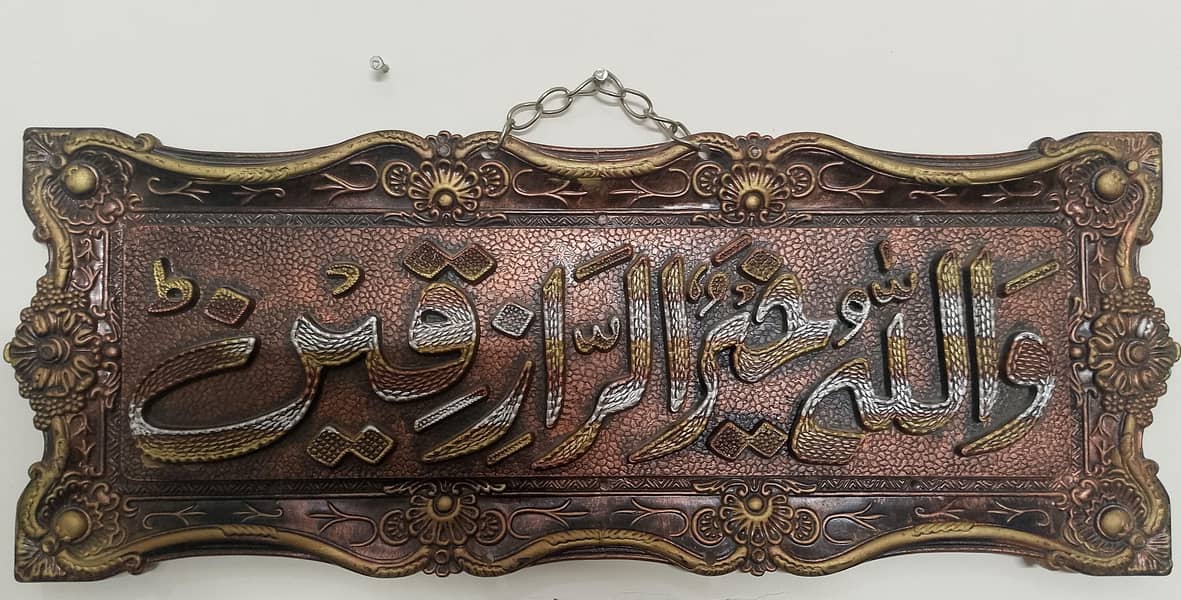 وَاللّٰهُ خَيْرُ الرَّازِقِيْنَ ط